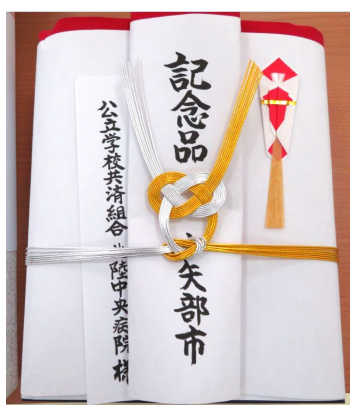 記念品 矢部市
公立学校共済組合 陸中央病院 様